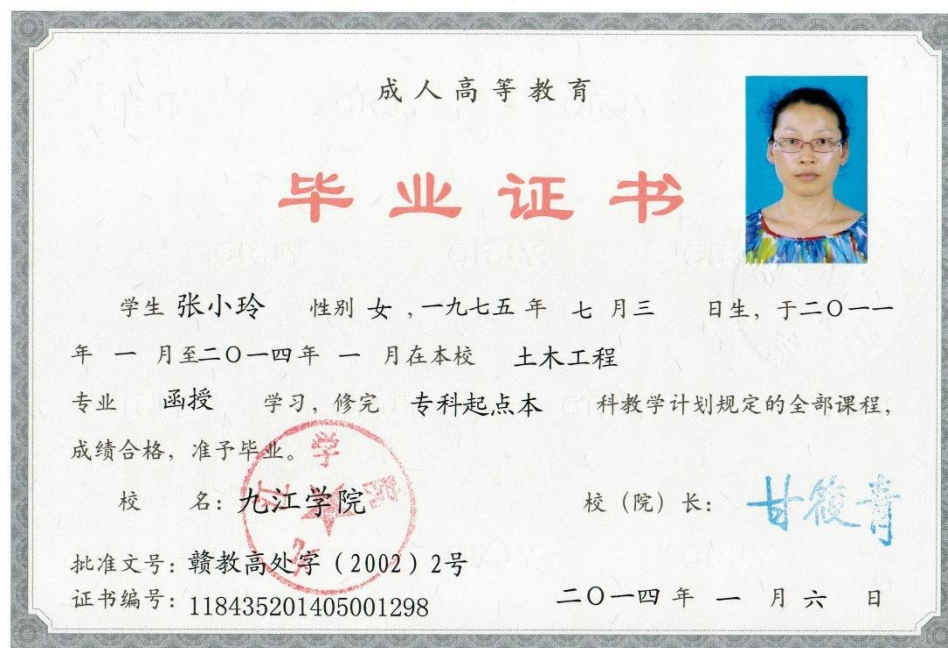 成人高等教育
毕业证书
学生 张小玲 性别 女 ,一九七五 年 七 月 三 日生, 于二〇一一
年 一 月至二〇一四年 一 月在本校 土木工程
专业 函授 学习, 修完 专科起点本 科教学计划规定的全部课程,
成绩合格, 准予毕业。
校 名: 九江学院 校 (院) 长: 甘筱青
批准文号: 赣教高处字 (2002) 2号
证书编号: 118435201405001298 二〇一四 年 一 月 六 日
九江学院